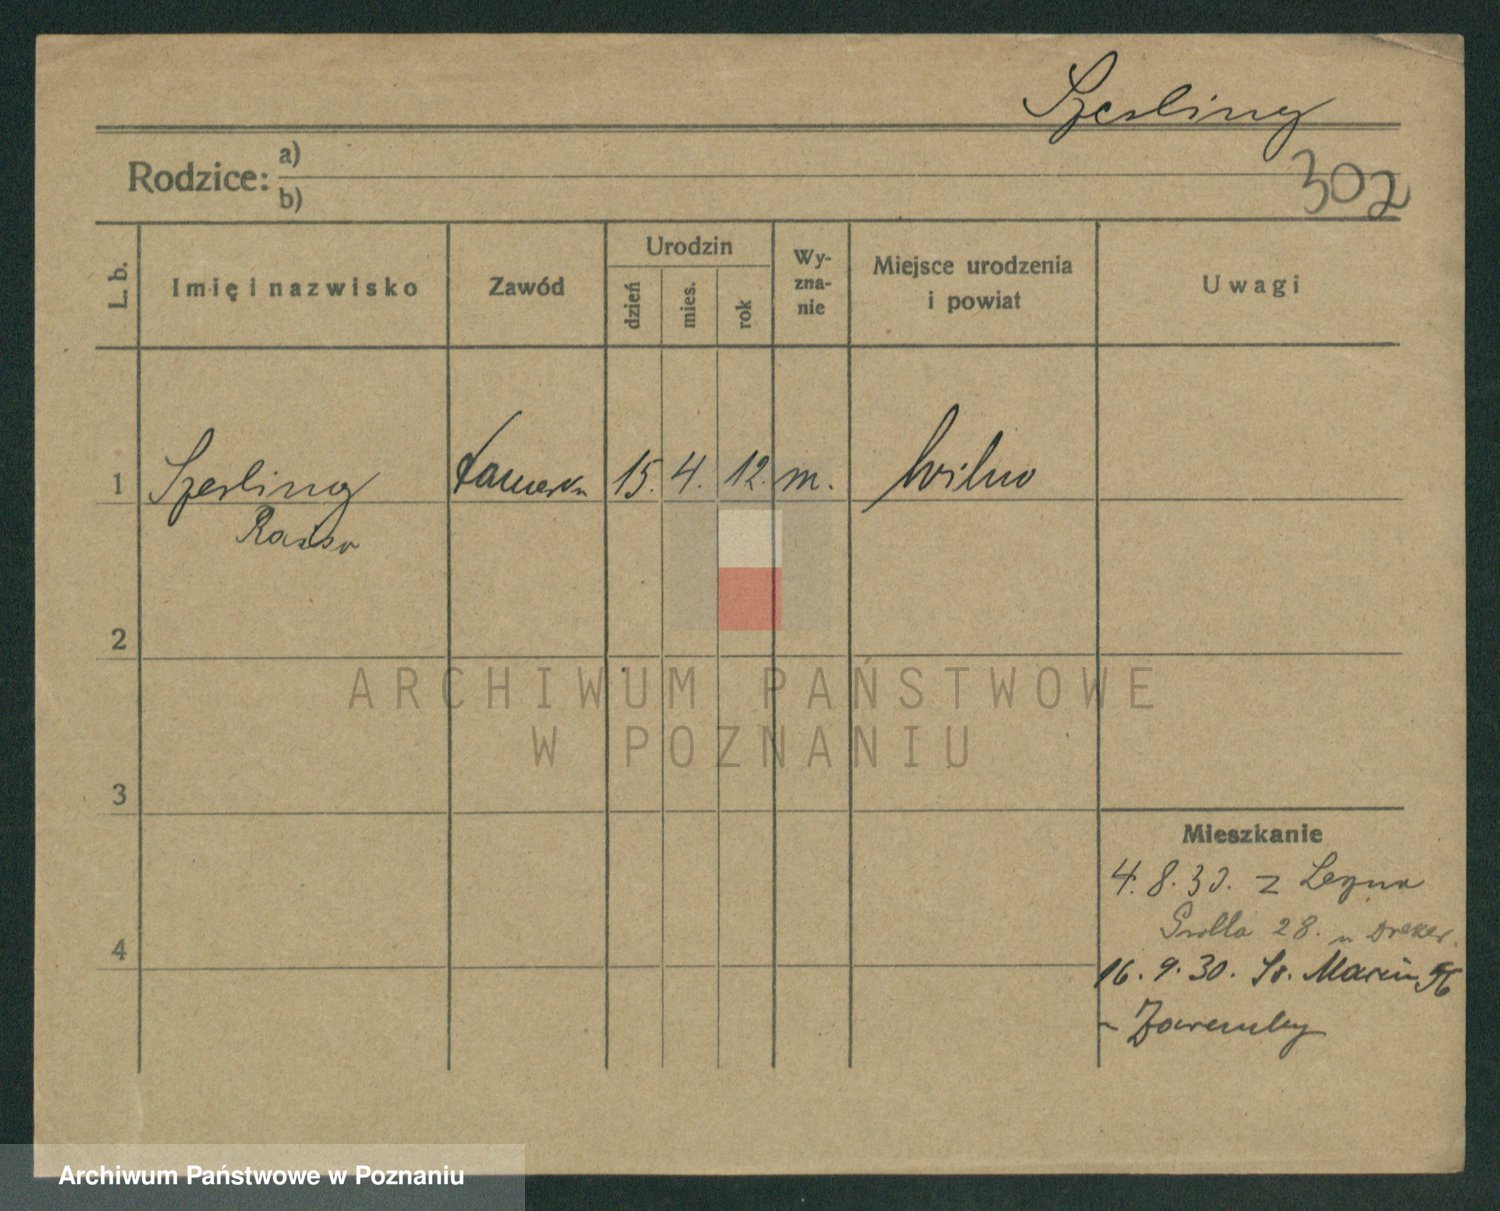 Szerling
302
Rodzice: a)
b)
L. b.
Imię i nazwisko
Zawód
Urodzin
dzień
mies.
rok
Wy-
zna-
nie
Miejsce urodzenia
i powiat
Uwagi
1
Szerling
15. 4. 12. m.
Wilno
Raisa
2
ARCHIWUM PAŃSTWOWE
W POZNANIU
3
Mieszkanie
4. 8. 30. z
28. u
4
16. 9. 30. Św. Marcin
Archiwum Państwowe w Poznaniu